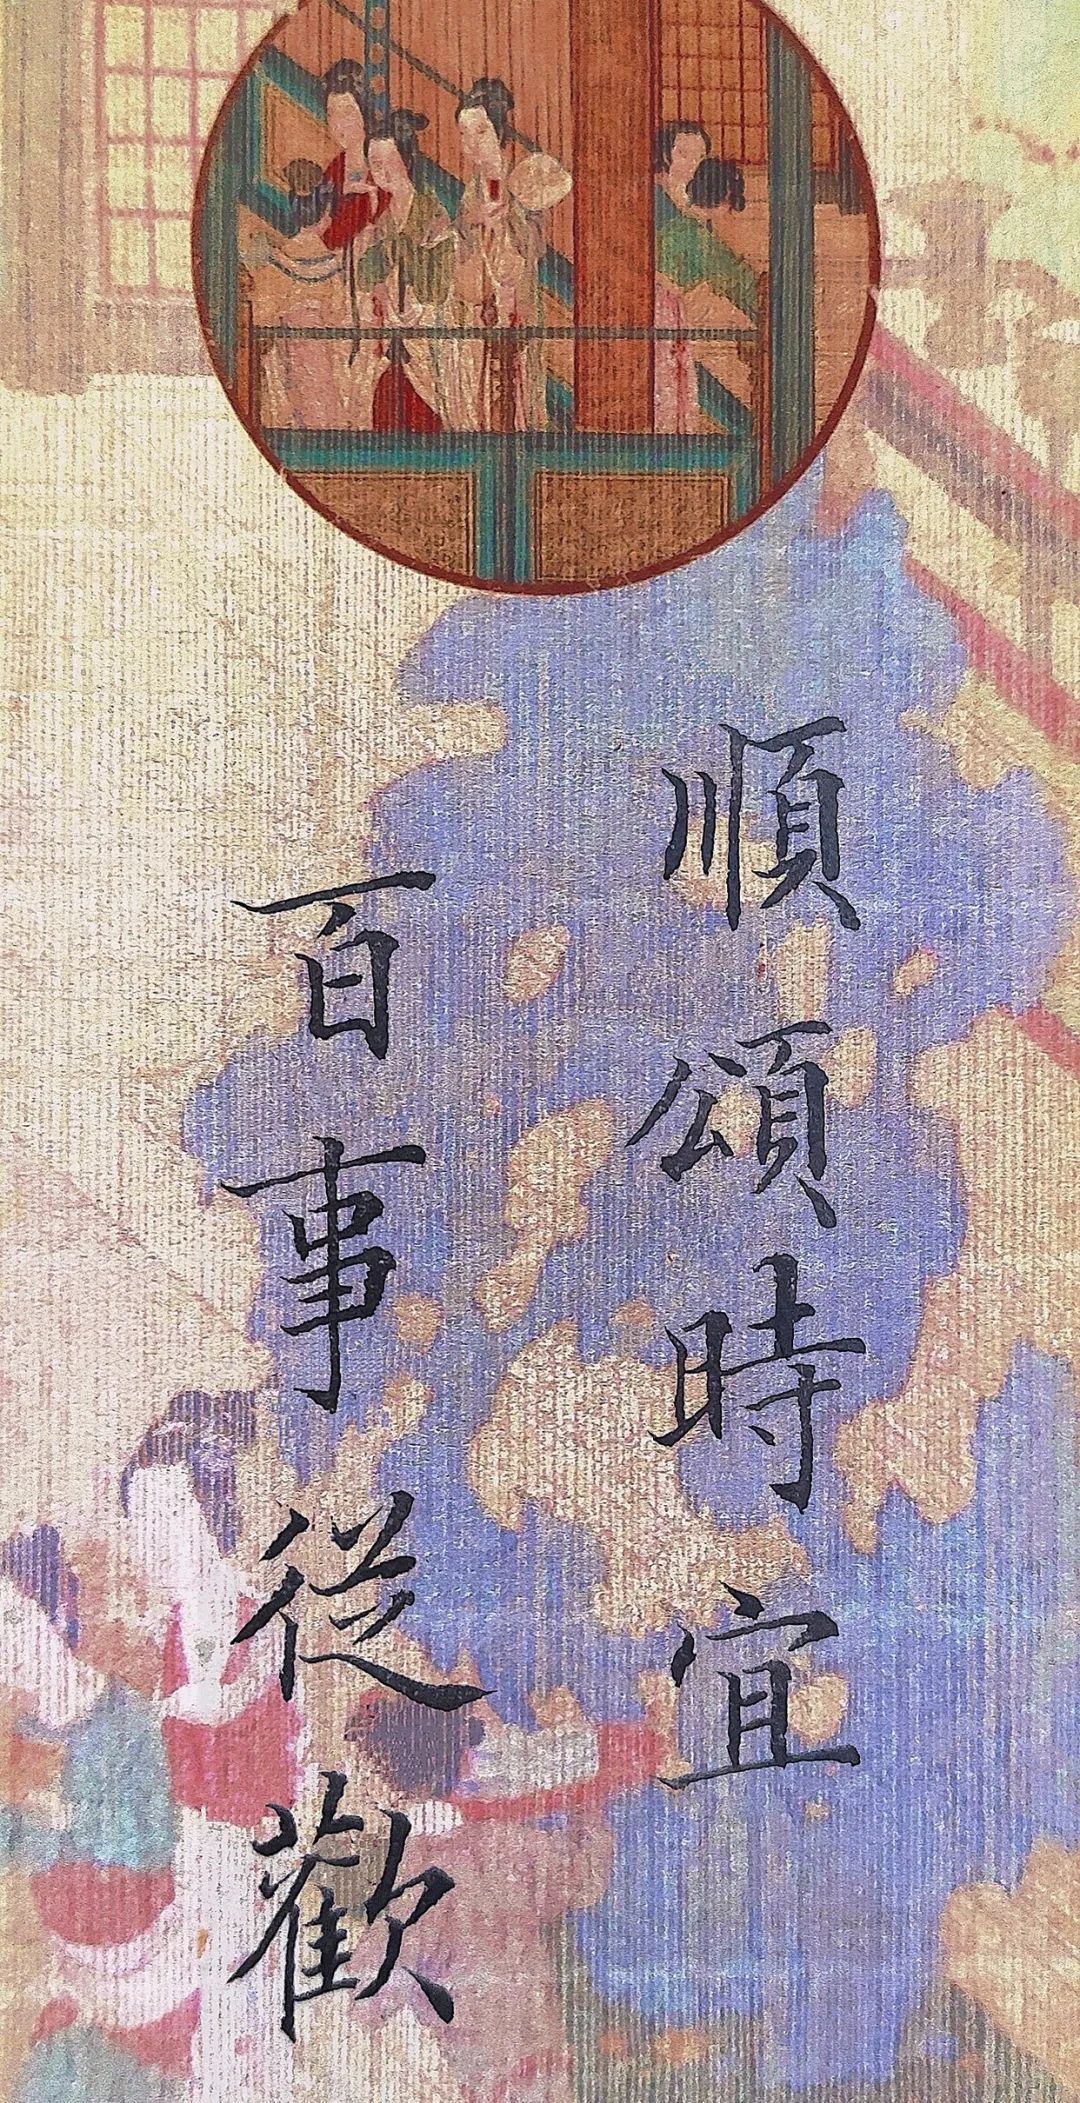 順頌時宜
百事従歡